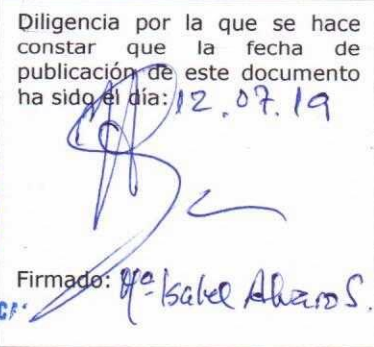 Diligencia por la que se hace
constar que la fecha de
publicación de este documento
ha sido el día: 12.07.19
Firmado: Mª Isabel Alvaro S.